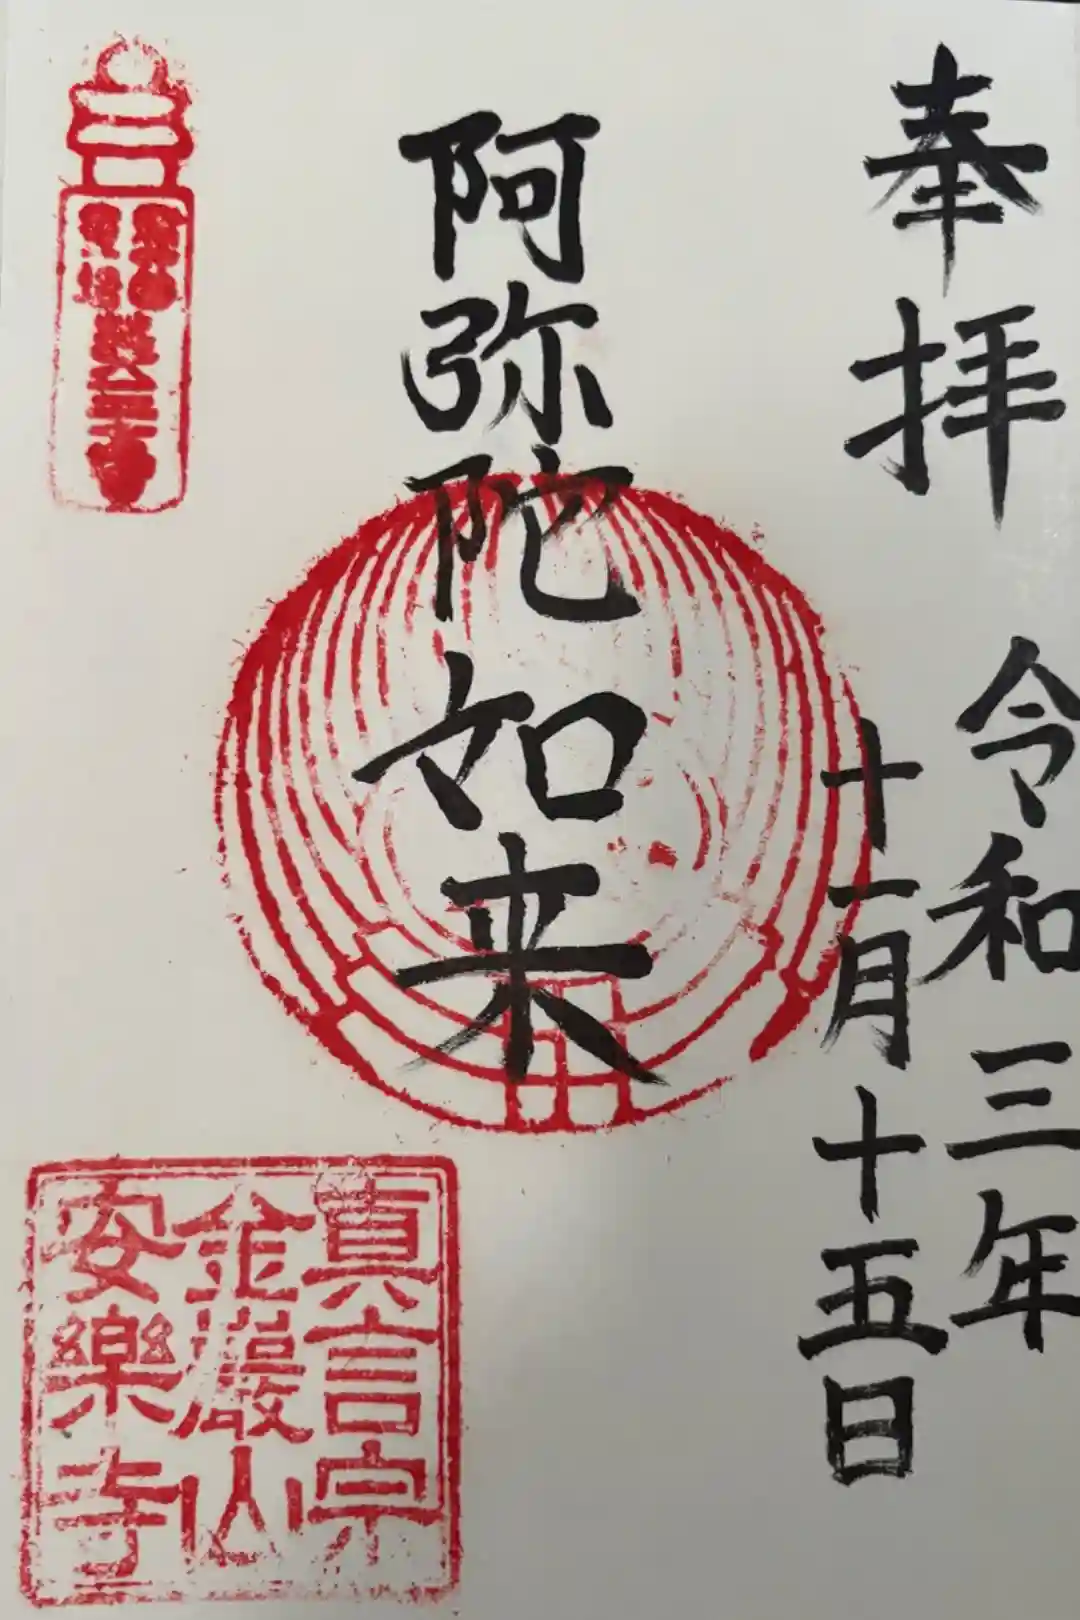 奉拝
令和三年
十一月十五日
阿弥陀如来
真言宗
金巖山
安樂寺